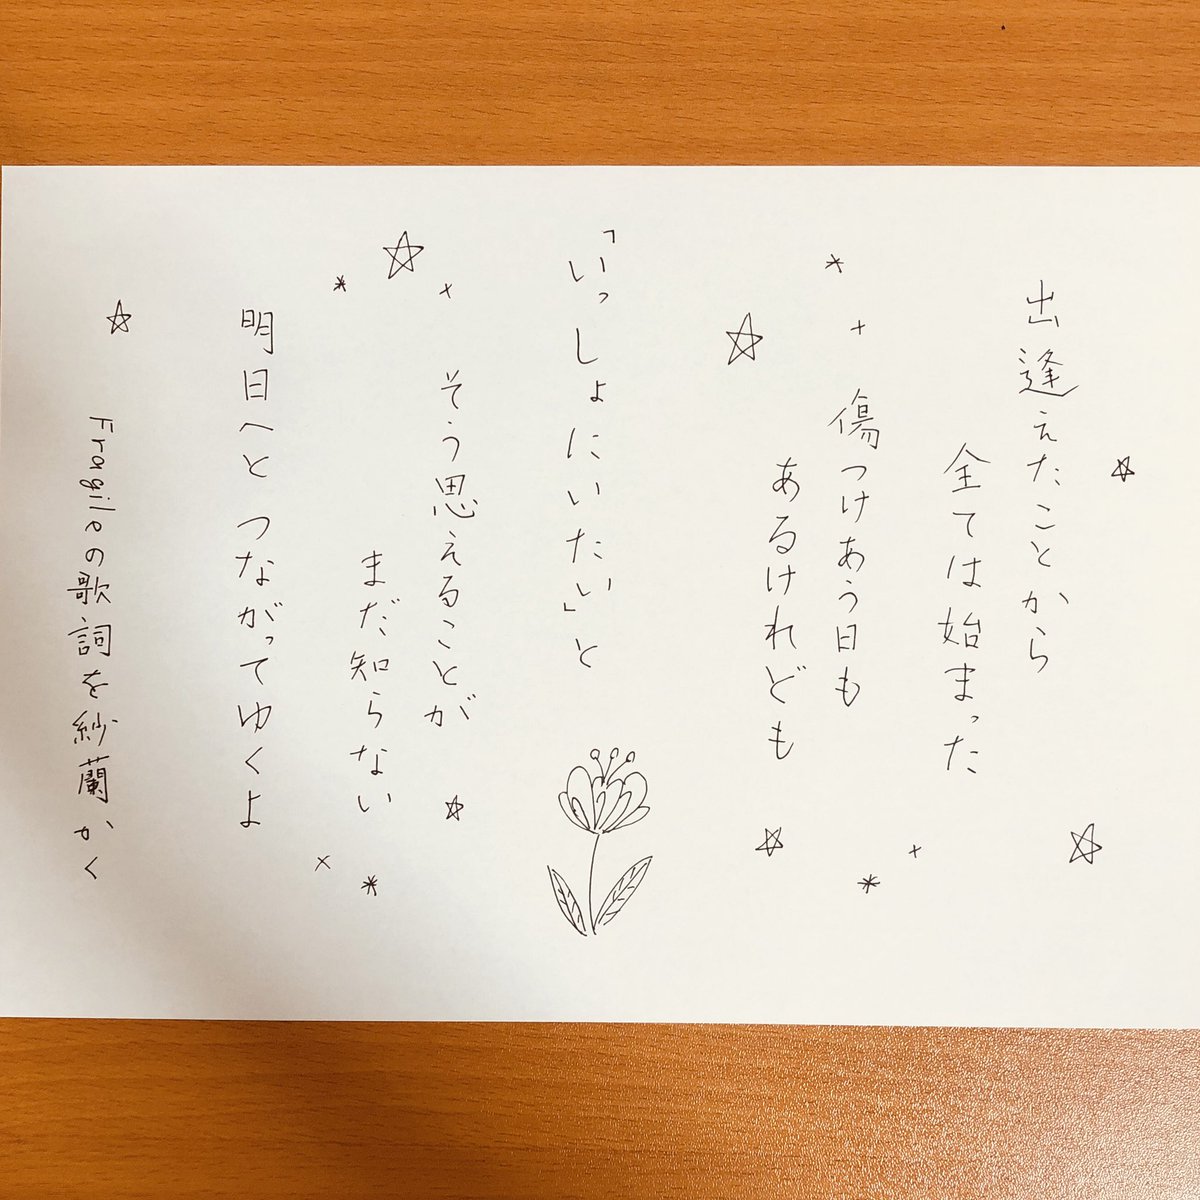 出逢えたことから
全ては始まった
傷つけあう日も
あるけれども
「いっしょにいたい」と
そう思えることが
まだ知らない
明日へとつながってゆくよ
Fragileの歌詞を紗蘭かく